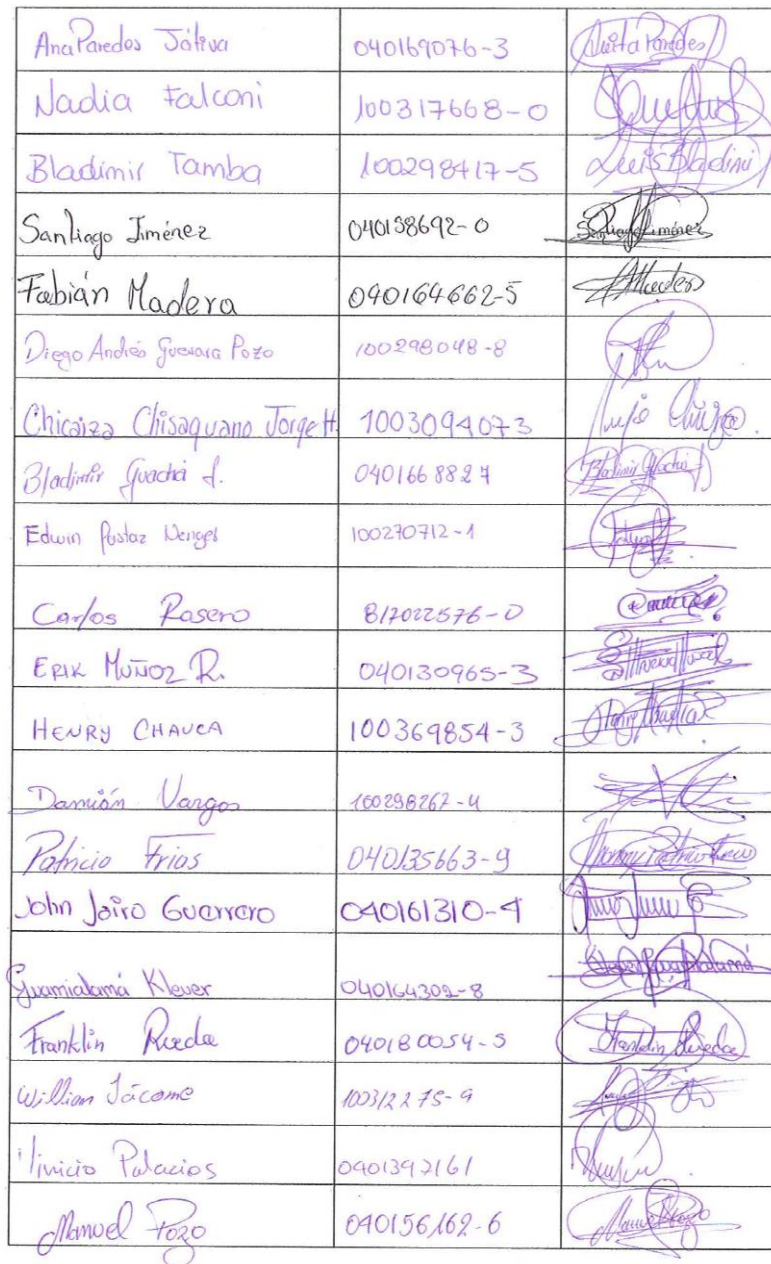 Ana Paredes Játiva 040169076-3 Anita Paredes
Nadia Falconi 100317668-0
Bladimir Tamba 100298417-5 Luis Bladimi
Santiago Jiménez 040158692-0 Santiago Jiménez
Fabián Madera 040164662-5
Diego Andrés Guevara Pozo 100298048-8
Chicaiza Chisaguano Jorge H. 1003094073
Bladimir Guachá 0401668827 Bladimir Guachá
Edwin 100270712-1
Carlos Rosero 817022576-0
ERIK MUÑOZ R. 040130965-3
HENRY CHAUCA 100369854-3 Henry
Damián Vargas 100298267-4
Patricio Frias 040135663-9
John Jairo Guerrero 040161310-4
Guamialamá Klever 040164302-8
Franklin Rueda 040180054-5 Franklin Rueda
William Jácome 100312275-9
Vinicio Palacios 0401392161
Manuel Pozo 040156162-6 Manuel Pozo